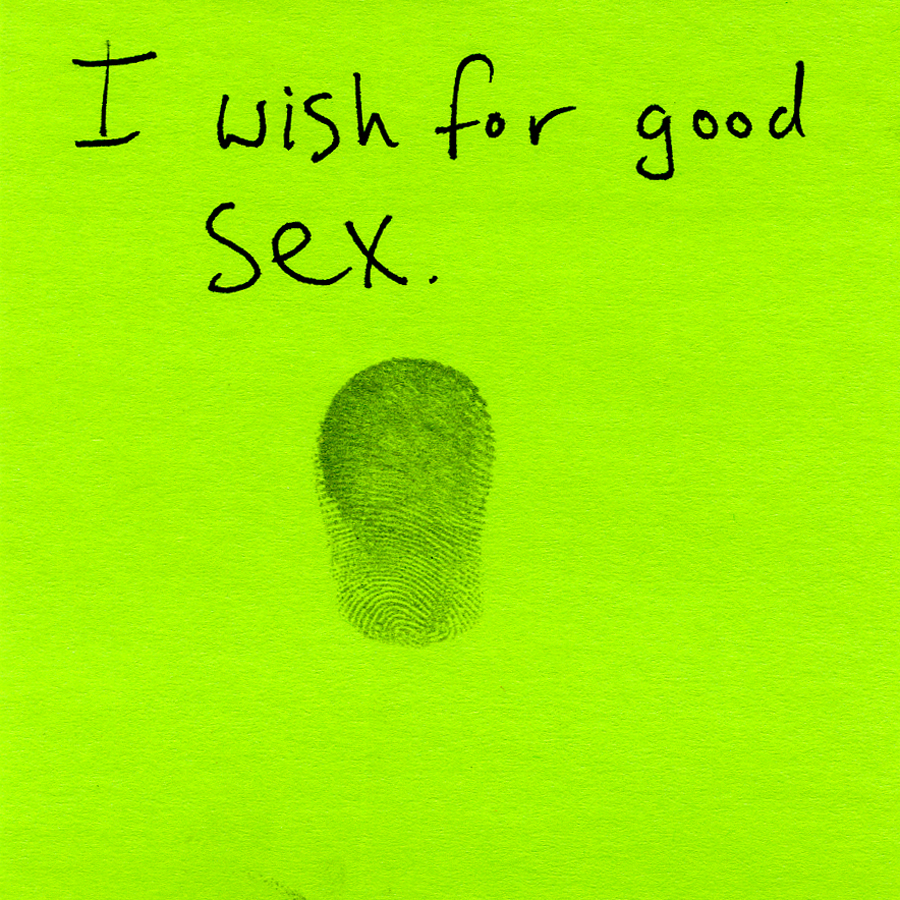 I wish for good
sex.